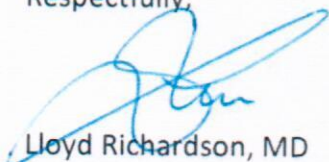 Respectfully,
Lloyd Richardson, MD